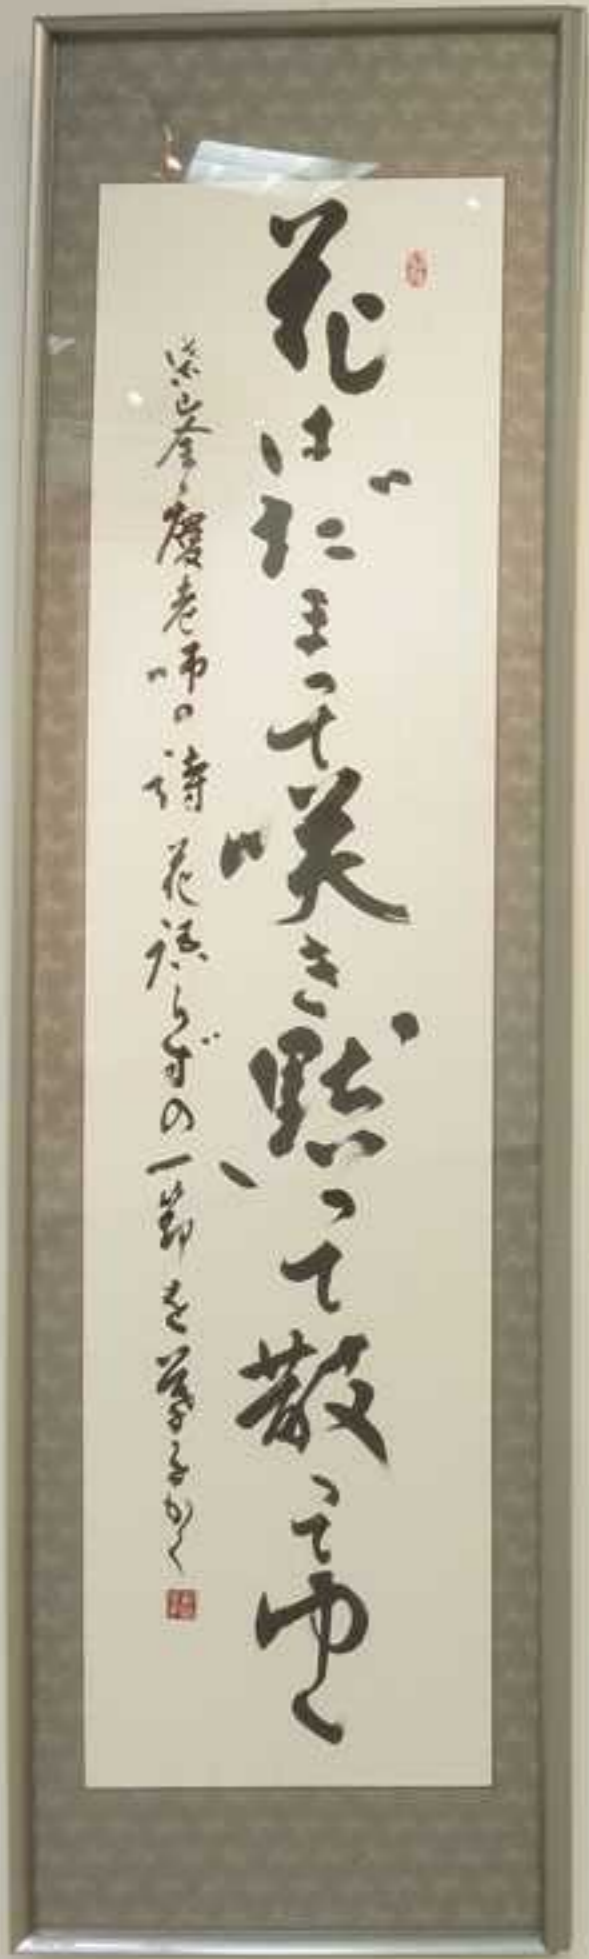 花はだまって咲き黙って散ってゆく
柴山全慶老師の詩花語らずの一節を幸子かく